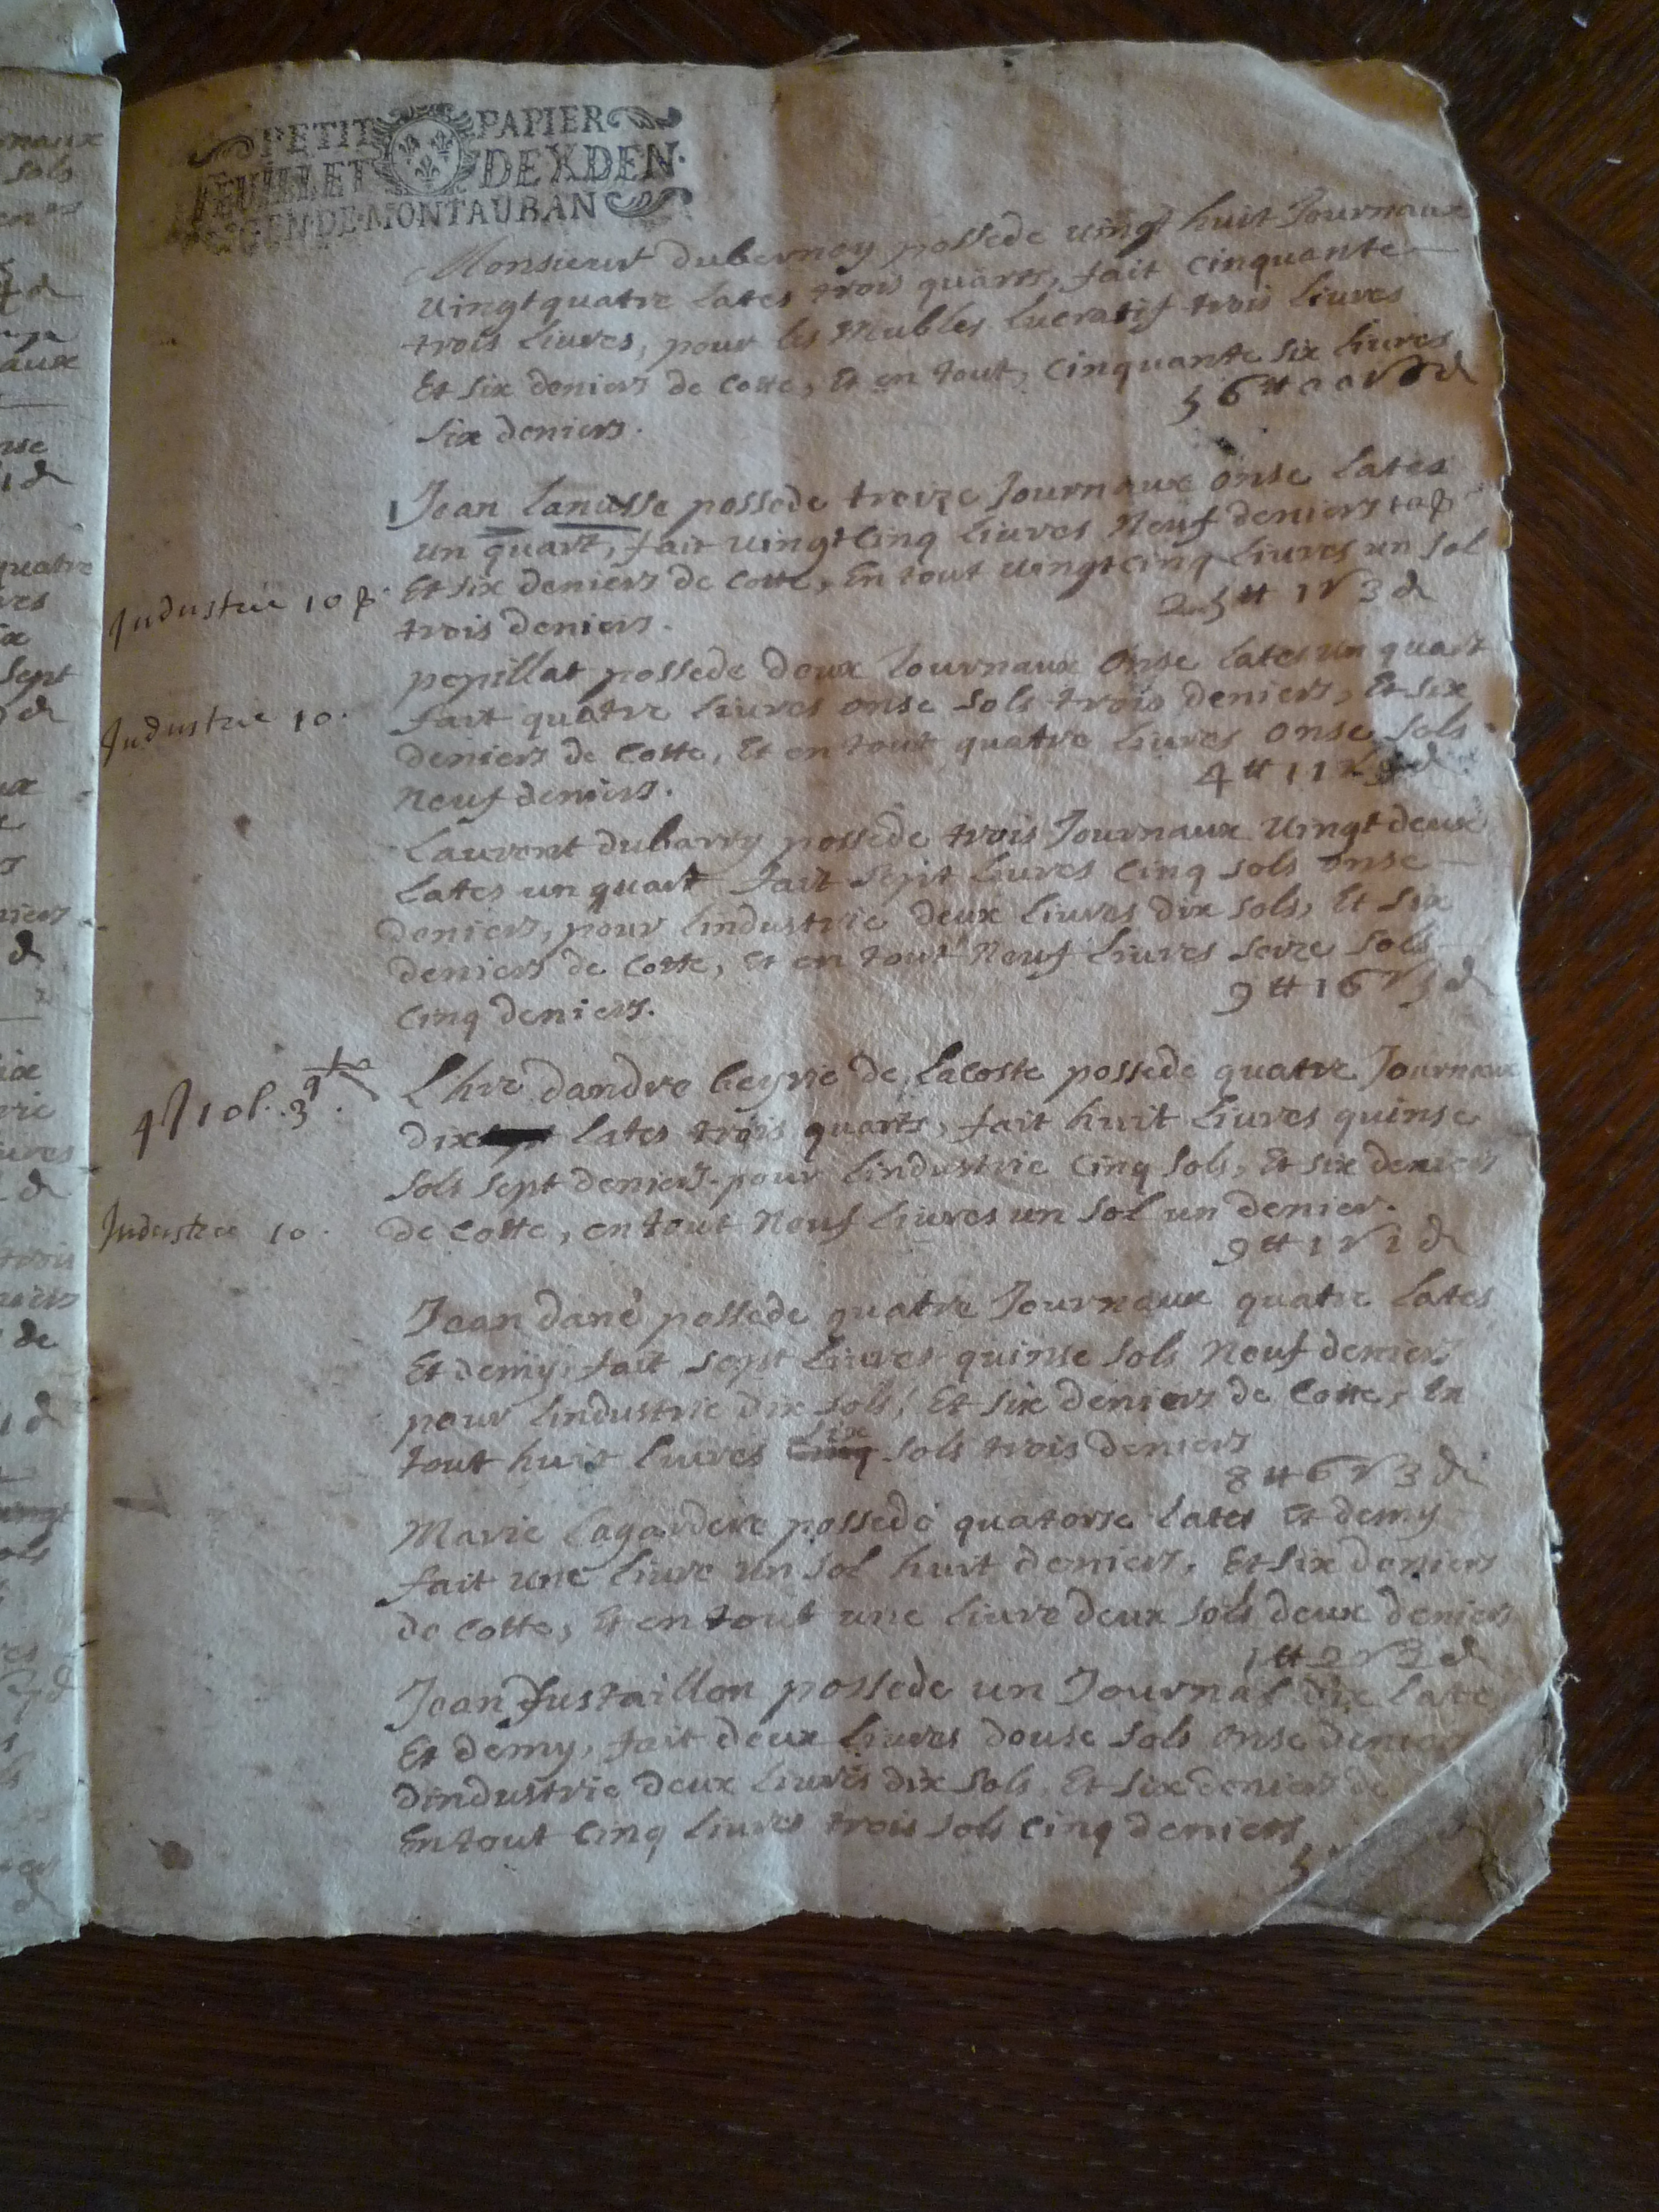 PETIT PAPIER
FEUILLET DE X DEN.
GEN DE MONTAUBAN
Monsieur dubernoy possede vingt huit Journaux
vingt quatre Lates trois quarts, fait Cinquante
trois Livres, pour les Meubles Lucratif trois Livres
Et six deniers de Cotte, Et en tout, Cinquante six Livres
six deniers.
56 tt 00 s 6 d
1 Jean Lanusse possede treize Journaux onse Lates
un quart, fait vingt Cinq Livres Neuf deniers
Industrie 10
Et six deniers de Cotte, En tout vingt Cinq Livres un sol
trois deniers.
25 tt 1 s 3 d
pepillat possede deux Journaux onse Lates un quart
Industrie 10.
fait quatre Livres onse sols trois deniers, Et six
deniers de Cotte, Et en tout quatre Livres onse sols
Neuf deniers.
4 tt 11 s 9 d
Laurent dubarry possede trois Journaux vingt deux
Lates un quart fait sept Livres Cinq sols onse
deniers, pour Lindustrie deux Livres dix sols, Et six
deniers de Cotte, Et en tout Neuf Livres seize sols
Cinq deniers.
9 tt 16 s 5 d
L'hre dandre beyrie de Lacoste possede quatre Journaux
dix Lates trois quarts, fait huit Livres quinse
sols sept deniers. pour Lindustrie Cinq sols, Et six deniers
Industrie 10.
de Cotte, en tout Neuf Livres un sol un denier.
9 tt 1 s 1 d
Jean dané possede quatre Journaux quatre Lates
Et demy, fait sept Livres quinse sols Neuf deniers
pour Lindustrie dix sols, Et six deniers de Cotte, En
tout huit Livres Cinq six sols trois deniers
8 tt 6 s 3 d
Marie Lagardere possede quatorse Lates Et demy
fait une Livre un sol huit deniers, Et six deniers
de Cotte, Et en tout une Livre deux sols deux deniers
1 tt 2 s 2 d
Jean Justaillon possede un Journal dix Late
Et demy, fait deux Livres douse sols onse deniers
dindustrie deux Livres dix sols, Et six deniers de
En tout Cinq Livres trois sols Cinq deniers
5